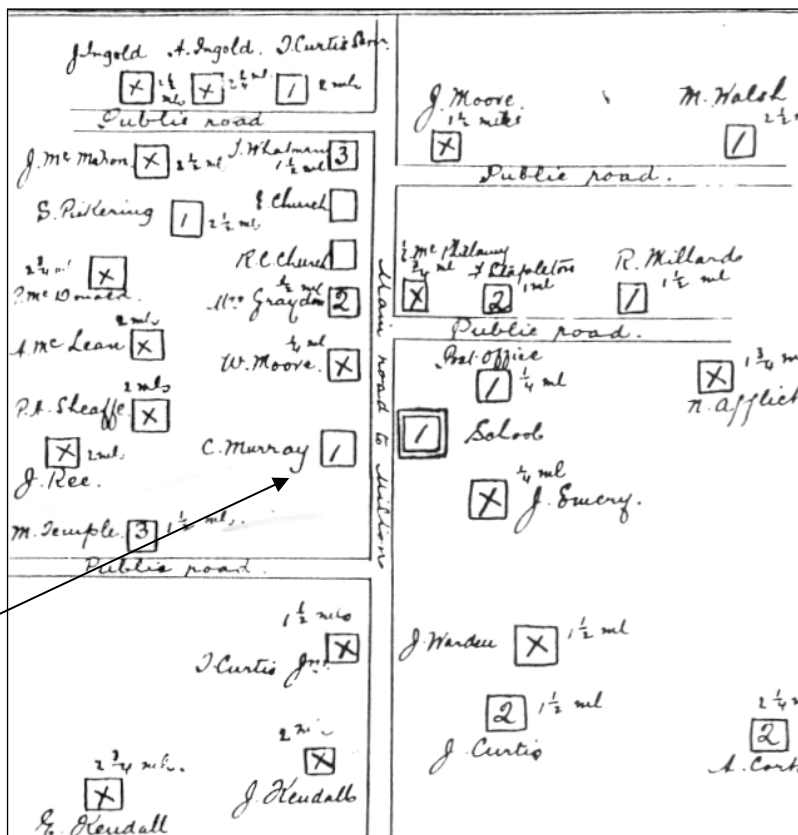 J. Ingold A. Ingold. T. Curtis Senr.
X 2 1/2 mls X 2 1/4 ml 1 2 mls
Public road
J. McMahon X 2 1/2 ml
T. Whatman 1 1/2 ml 3
S. Pickering 1 2 1/2 ml.
E. Church
R.C. Church
2 3/4 ml X
P. McDonald.
Mrs Graydon 1/2 ml 2
2 mls
A. McLean X
W. Moore. 1/4 ml X
2 mls
P.A. Sheaffe X
X 2 mls
J. Ree.
C. Murray 1
M. Temple. 3 1 1/2 ml.
Public road.
1 1/2 mls
T. Curtis Jnr. X
2 3/4 mls. X
E. Kendall
2 X
J. Kendall
Main road to Milton
J. Moore.
1 1/2 miles
X
M. Walsh
1 2 1/2
Public road.
3/4 ml X
Stapleton
2 1 ml
R. Millards
1 1 1/2 ml
Public road.
Post Office
1 1/4 ml
X 1 3/4 m
N. Afflick
1 School
1/4 ml
X J. Emery.
J. Warden X 1 1/2 ml
2 1 1/2 ml
J. Curtis
2 1/4 m
2
A. Cork